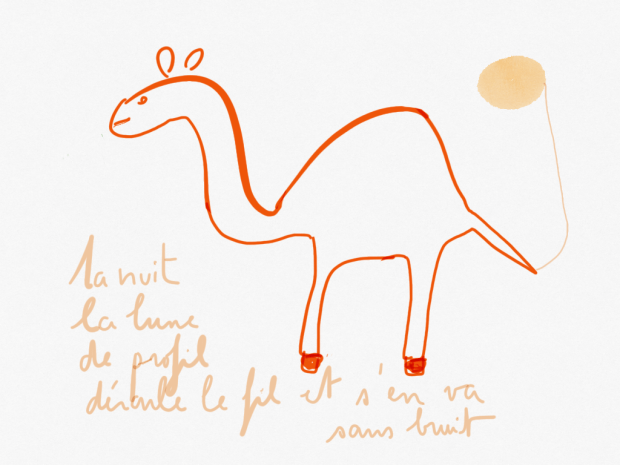 la nuit
la lune
de profil
déroule le fil et s'en va
sans bruit